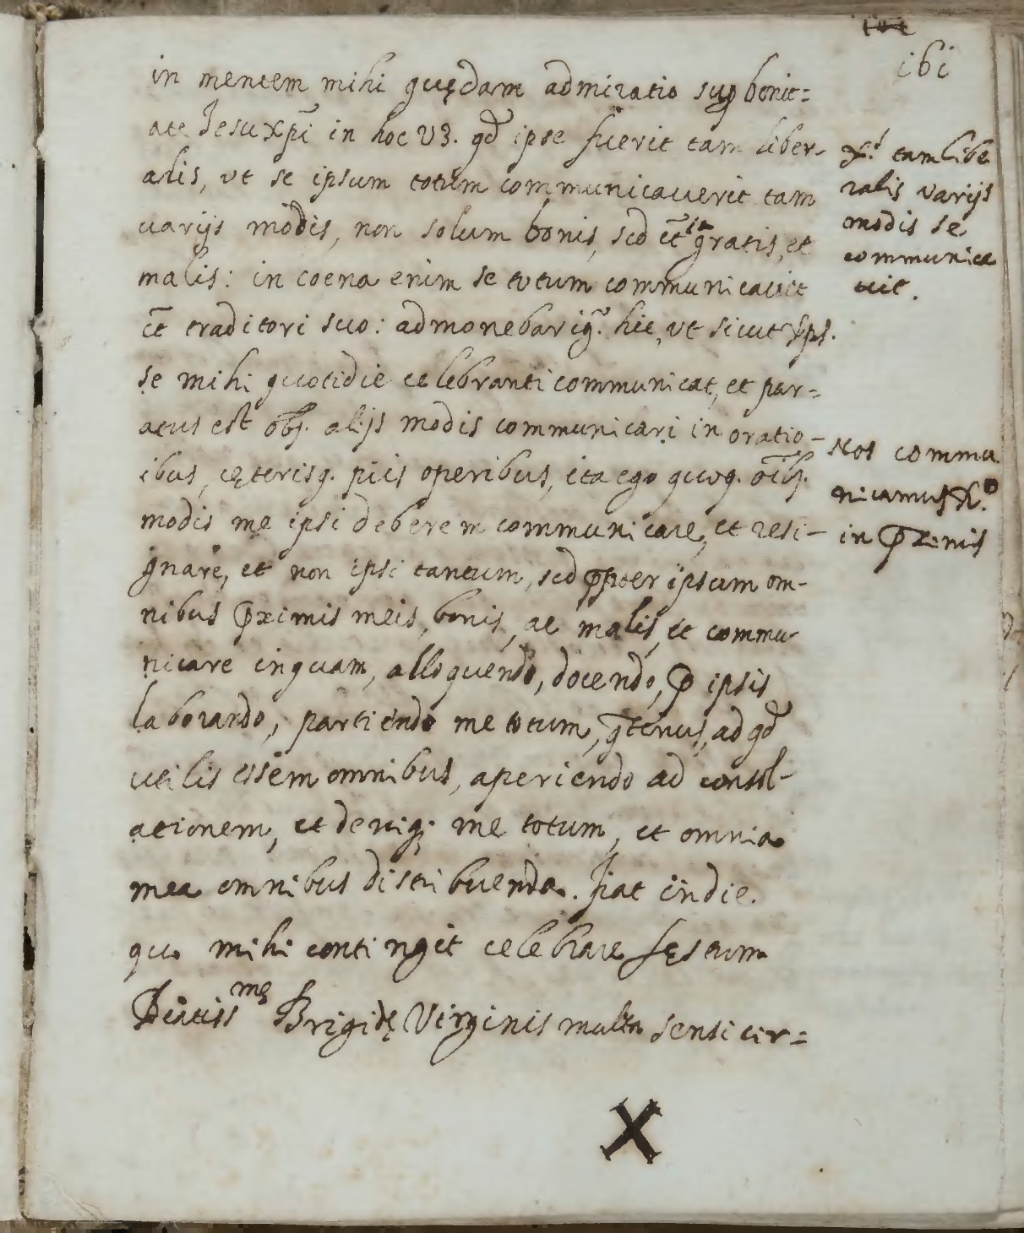 161
in mentem mihi quędam admiratio sup bonit=
ate Jesu xp̄i in hoc vz. qd ipse fuerit tam liber-
alis, vt se ipsum totum communicauerit tam
uarijs modis, non solum bonis, sed et gratis, et
malis: in coena enim se totum communicauit
et traditori suo: admonebariq. hic, vt sicut xps.
se mihi quotidie celebranti communicat, et par=
atus est obj. alijs modis communicari in oratio-
ibus, cęterisq. piis operibus, ita ego quoq. oībj.
modis me ipsi deberem communicare, et resi-
gnare, et non ipsi tantum, sed ꝓpter ipsum om-
nibus ꝓximis meis, bonis, ac malis, et commu-
nicare inquam, alloquendo, docendo, ꝓ ipsis
laborando, partiendo me totum, qtenus, ad qd
utilis essem omnibus, aperiendo ad consol-
ationem, et deniq. me totum, et omnia
mea omnibus distribuenda. fiat indie.
quo mihi contingit celebrare festum
Brigidę Virginis multa sensi cir=
X
X.s tam libe
ralis varijs
modis se
communica
uit.
Nos commu
nicamus X.o
in ꝓximis